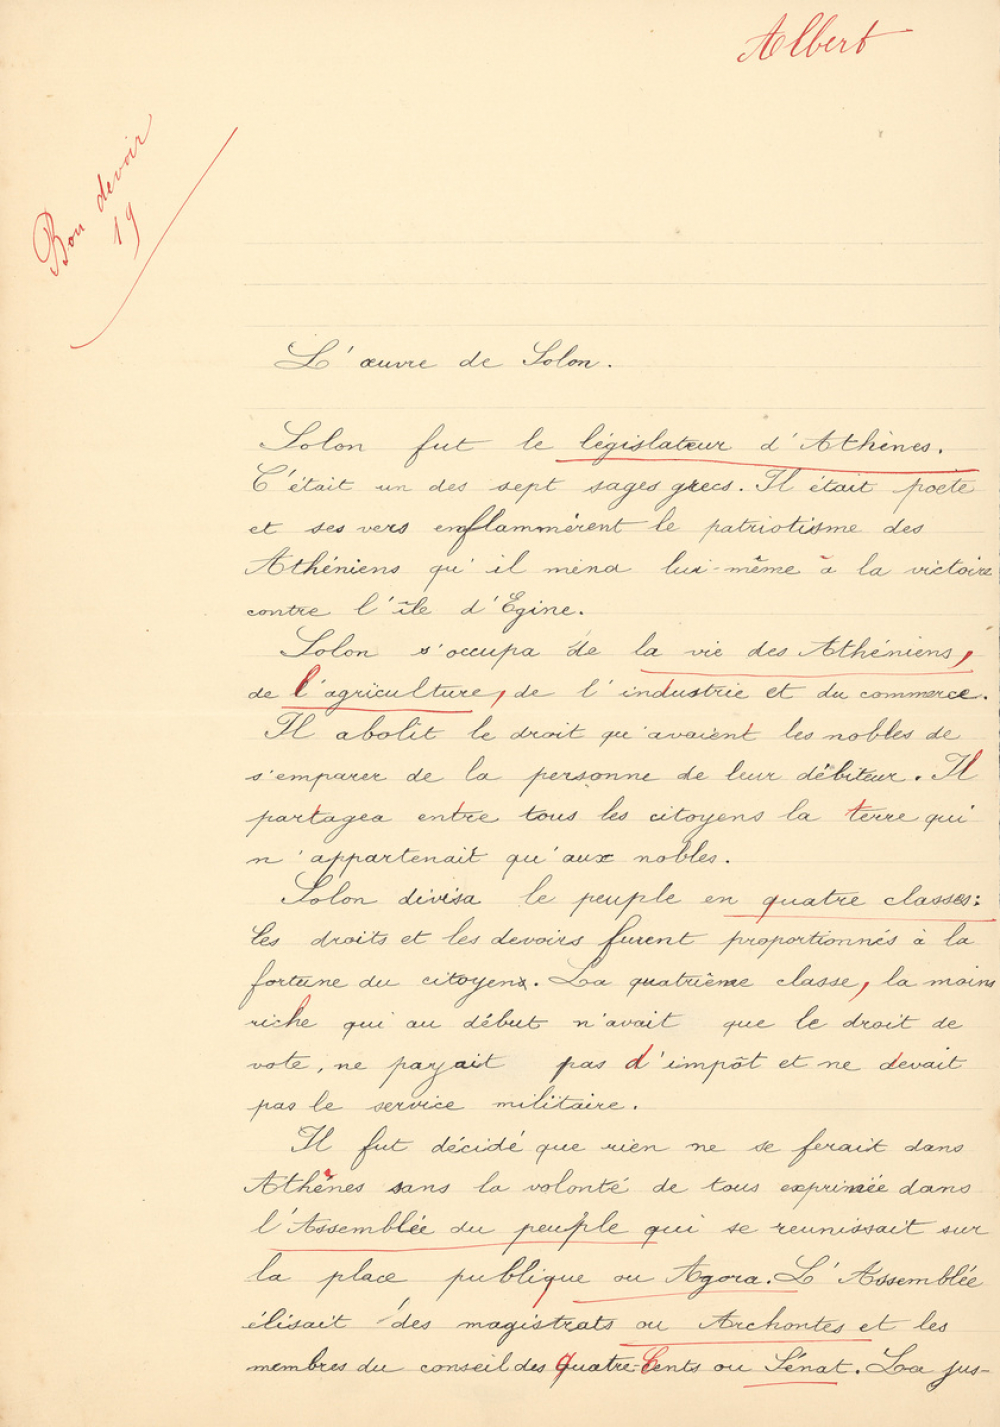 Albert
Bon devoir
19
L'œuvre de Solon.
Solon fut le législateur d'Athènes.
C'était un des sept sages grecs. Il était poète
et ses vers enflammèrent le patriotisme des
Athéniens qu'il mena lui-même à la victoire
contre l'île d'Egine.
Solon s'occupa de la vie des Athéniens,
de l'agriculture, de l'industrie et du commerce.
Il abolit le droit qu'avaient les nobles de
s'emparer de la personne de leur débiteur. Il
partagea entre tous les citoyens la terre qui
n'appartenait qu'aux nobles.
Solon divisa le peuple en quatre classes:
les droits et les devoirs furent proportionnés à la
fortune du citoyen. La quatrième classe, la moins
riche qui au début n'avait que le droit de
vote, ne payait pas d'impôt et ne devait
pas le service militaire.
Il fut décidé que rien ne se ferait dans
Athènes sans la volonté de tous exprimée dans
l'Assemblée du peuple qui se reunissait sur
la place publique ou Agora. L'Assemblée
élisait des magistrats ou Archontes et les
membres du conseil des Quatre-Cents ou Sénat. La jus-